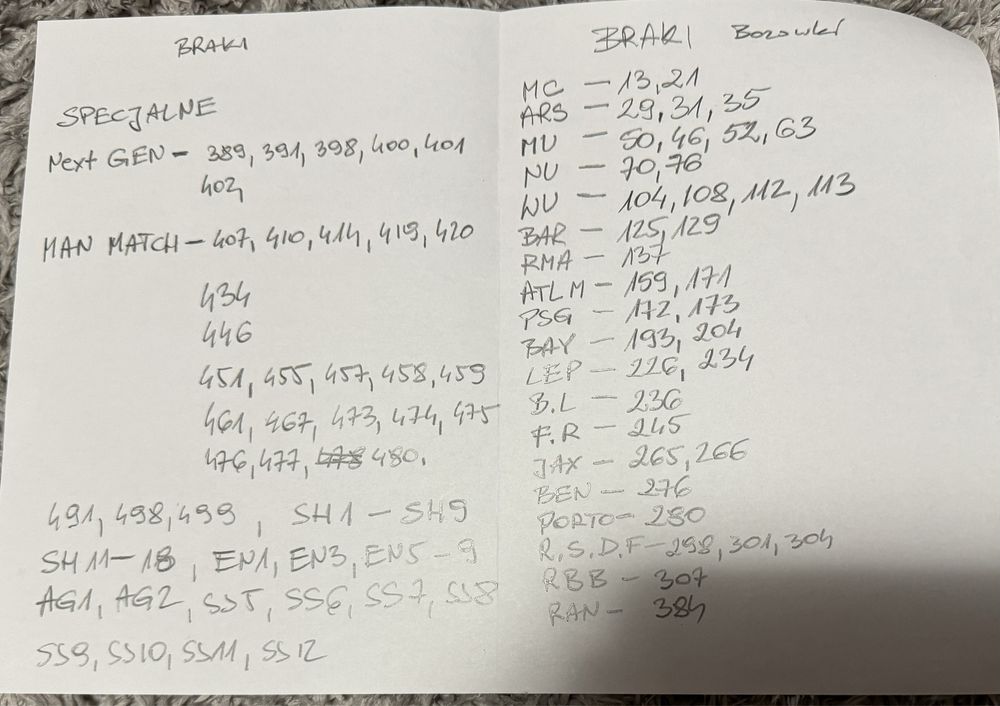 BRAKI
SPECJALNE
Next GEN – 389, 391, 398, 400, 401
402
MAN MATCH – 407, 410, 414, 419, 420
434
446
451, 455, 457, 458, 459
461, 467, 473, 474, 475
476, 477, 478 480.
491, 498, 499, SH1 – SH9
SH11–18, EN1, EN3, EN5–9
AG1, AG2, SS5, SS6, SS7, SS8
SS9, SS10, SS11, SS12
BRAKI Bozowki
MC – 13, 21
ARS – 29, 31, 35
MU – 50, 46, 52, 63
NU – 70, 76
WU – 104, 108, 112, 113
BAR – 125, 129
RMA – 137
ATLM – 159, 171
PSG – 172, 173
BAY – 193, 204
LEP – 226, 234
B.L – 236
F.R – 245
JAX – 265, 266
BEN – 276
PORTO – 280
R.S.D.F – 298, 301, 304
RBB – 307
RAN – 384